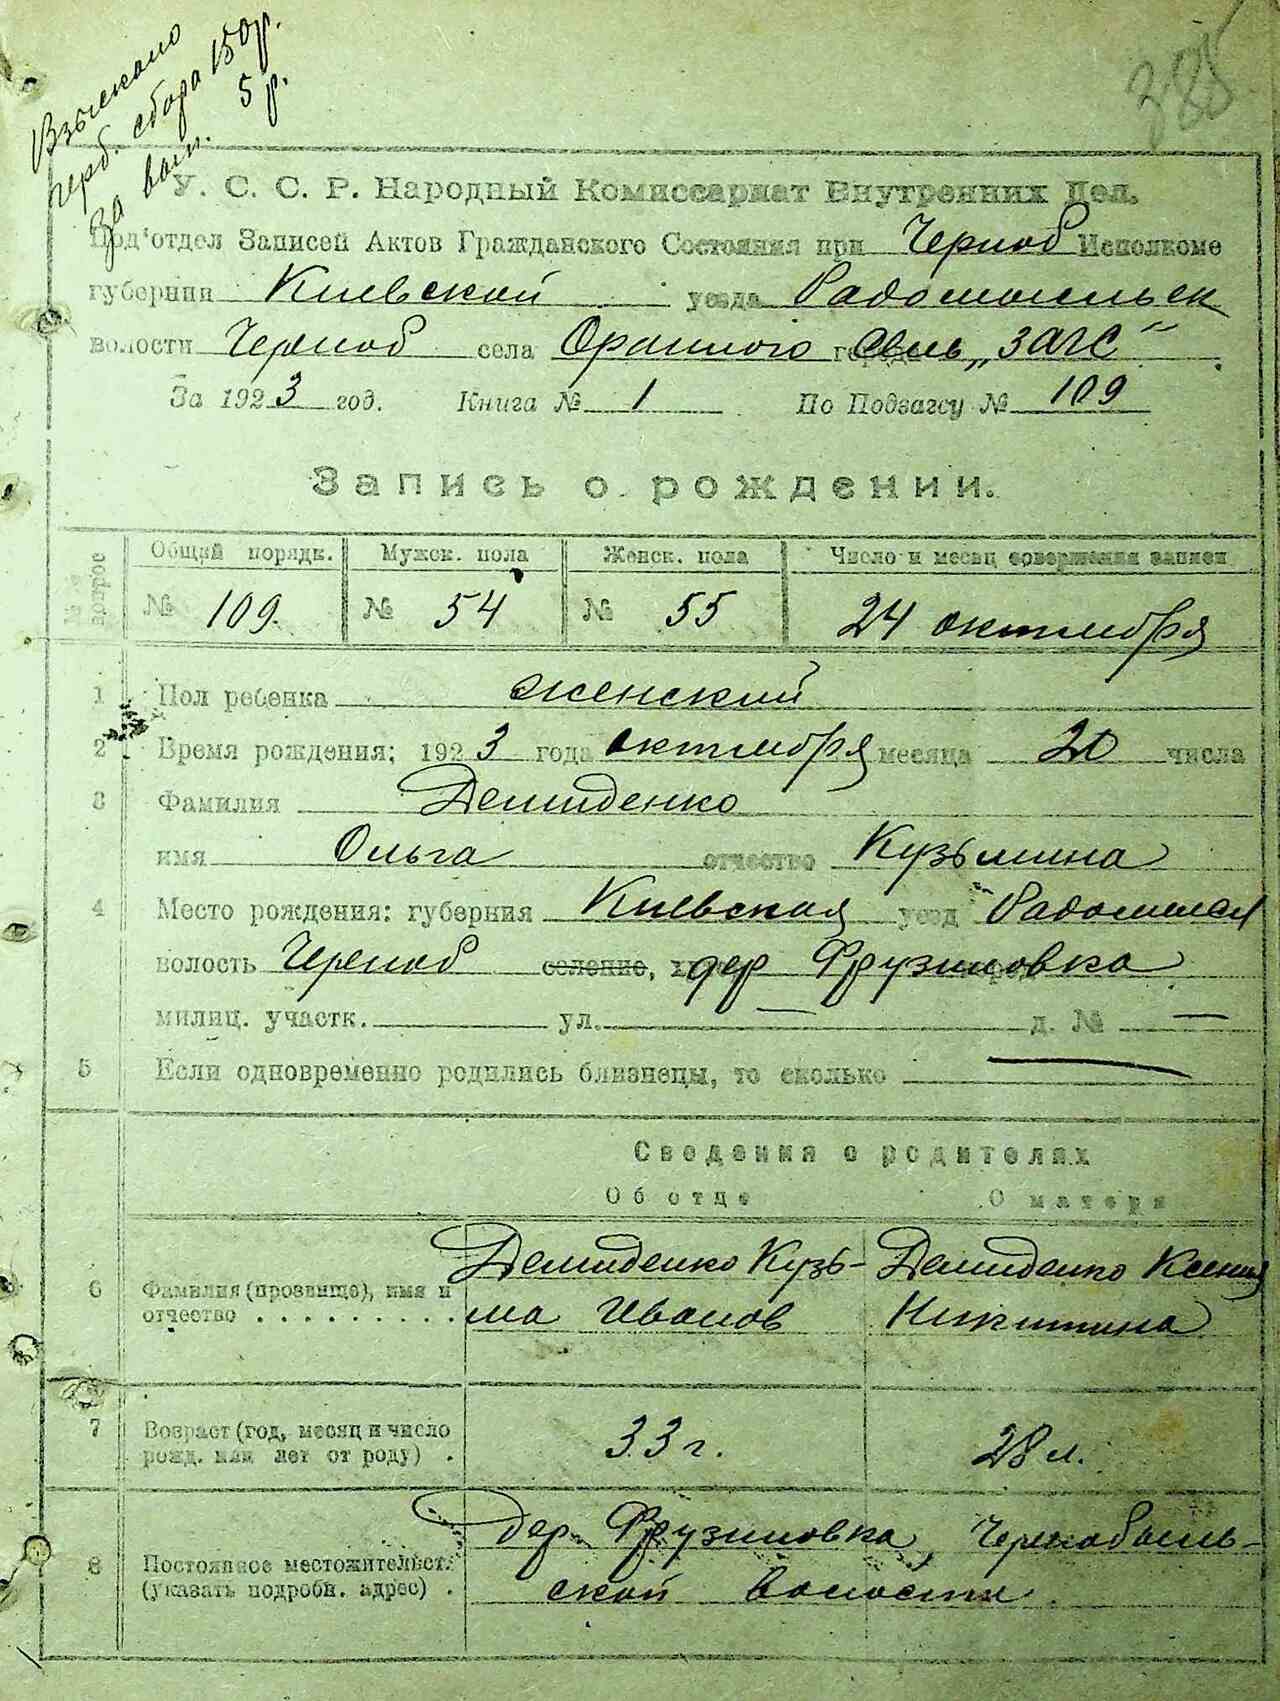 Взыскано
герб. сбора 150р.
за бланк. 5 р.
385
У. С. С. Р. Народный Комиссариат Внутренних Дел.
Под'отдел Записей Актов Гражданского Состояния при Черноб Исполкоме
губернии Киевской уезда Радомысльск
волости Черноб села Оранного города сель „ЗАГС"
За 1923 год. Книга № 1 По Подзагсу № 109
Запись о рождении.
№№ вопрос Общий порядк. Мужск. пола Женск. пола Число и месяц совершения записи
№ 109. № 54 № 55 24 октября
1 Пол ребенка женский
2 Время рождения: 1923 года октября месяца 20 числа
3 Фамилия Демиденко
имя Ольга отчество Кузьмина
4 Место рождения: губерния Киевская уезд Радомысл
волость Черноб селение, дер Фрузиновка
милиц. участк. — ул. д. № —
5 Если одновременно родились близнецы, то сколько —
Сведения о родителях
Об отце О матери
6 Фамилия (прозвище), имя и Демиденко Кузь- Демиденко Ксения
отчество . . . . . . . . . . ма Иванов Никитина
7 Возраст (год, месяц и число
рожд. или лет от роду) . 33 г. 28 л.
8 Постоянное местожительст. дер. Фрузиновка, Чернобыль-
(указать подробн. адрес) . ской волости.